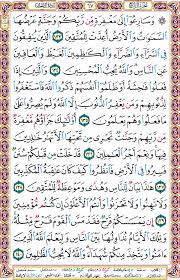 وَسَارِعُوٓا۟ إِلَىٰ مَغْفِرَةٍ مِّن رَّبِّكُمْ وَجَنَّةٍ عَرْضُهَا
ٱلسَّمَٰوَٰتُ وَٱلْأَرْضُ أُعِدَّتْ لِلْمُتَّقِينَ ١٣٣ ٱلَّذِينَ يُنفِقُونَ
فِى ٱلسَّرَّآءِ وَٱلضَّرَّآءِ وَٱلْكَٰظِمِينَ ٱلْغَيْظَ وَٱلْعَافِينَ
عَنِ ٱلنَّاسِ وَٱللَّهُ يُحِبُّ ٱلْمُحْسِنِينَ ١٣٤ وَٱلَّذِينَ إِذَا
فَعَلُوا۟ فَٰحِشَةً أَوْ ظَلَمُوٓا۟ أَنفُسَهُمْ ذَكَرُوا۟ ٱللَّهَ فَٱسْتَغْفَرُوا۟
لِذُنُوبِهِمْ وَمَن يَغْفِرُ ٱلذُّنُوبَ إِلَّا ٱللَّهُ وَلَمْ يُصِرُّوا۟ عَلَىٰ مَا
فَعَلُوا۟ وَهُمْ يَعْلَمُونَ ١٣٥ أُو۟لَٰٓئِكَ جَزَآؤُهُم مَّغْفِرَةٌ
مِّن رَّبِّهِمْ وَجَنَّٰتٌ تَجْرِى مِن تَحْتِهَا ٱلْأَنْهَٰرُ خَٰلِدِينَ
فِيهَا وَنِعْمَ أَجْرُ ٱلْعَٰمِلِينَ ١٣٦ قَدْ خَلَتْ مِن قَبْلِكُمْ سُنَنٌ
فَسِيرُوا۟ فِى ٱلْأَرْضِ فَٱنظُرُوا۟ كَيْفَ كَانَ عَٰقِبَةُ ٱلْمُكَذِّبِينَ
١٣٧ هَٰذَا بَيَانٌ لِّلنَّاسِ وَهُدًى وَمَوْعِظَةٌ لِّلْمُتَّقِينَ ١٣٨
وَلَا تَهِنُوا۟ وَلَا تَحْزَنُوا۟ وَأَنتُمُ ٱلْأَعْلَوْنَ إِن كُنتُم مُّؤْمِنِينَ
١٣٩ إِن يَمْسَسْكُمْ قَرْحٌ فَقَدْ مَسَّ ٱلْقَوْمَ قَرْحٌ مِّثْلُهُۥ
وَتِلْكَ ٱلْأَيَّامُ نُدَاوِلُهَا بَيْنَ ٱلنَّاسِ وَلِيَعْلَمَ ٱللَّهُ ٱلَّذِينَ
ءَامَنُوا۟ وَيَتَّخِذَ مِنكُمْ شُهَدَآءَ وَٱللَّهُ لَا يُحِبُّ ٱلظَّٰلِمِينَ ١٤٠